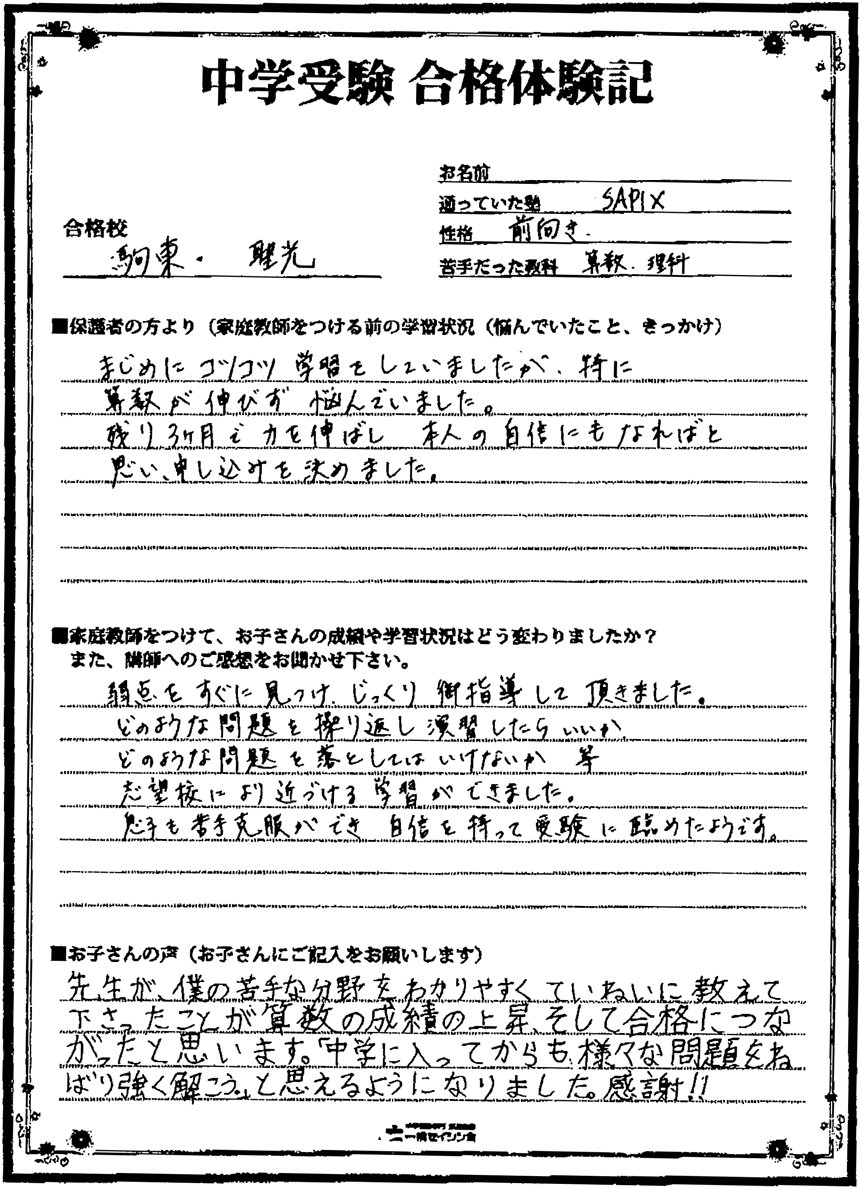 中学受験 合格体験記
お名前
通っていた塾 SAPIX
合格校
性格 前向き.
駒東・ 聖光
苦手だった教科 算数・理科
■保護者の方より（家庭教師をつける前の学習状況（悩んでいたこと、きっかけ）
まじめにコツコツ学習をしていましたが、特に
算数が伸びず 悩んでいました。
残り3ヶ月で力を伸ばし 本人の自信にもなればと
思い、申し込みを決めました。
■家庭教師をつけて、お子さんの成績や学習状況はどう変わりましたか？
また、講師へのご感想をお聞かせ下さい。
弱点をすぐに見つけ、じっくり御指導して頂きました。
どのような問題を繰り返し演習したらいいか、
どのような問題を落としてはいけないか 等
志望校により近づける学習ができました。
息子も苦手克服ができ 自信を持って受験に臨めたようです。
■お子さんの声（お子さんにご記入をお願いします）
先生が、僕の苦手な分野をわかりやすくていねいに教えて
下さったことが算数の成績の上昇、そして合格につな
がったと思います。「中学に入ってからも、様々な問題をね
ばり強く解こう。」と思えるようになりました。感謝!!
一橋セイシン会